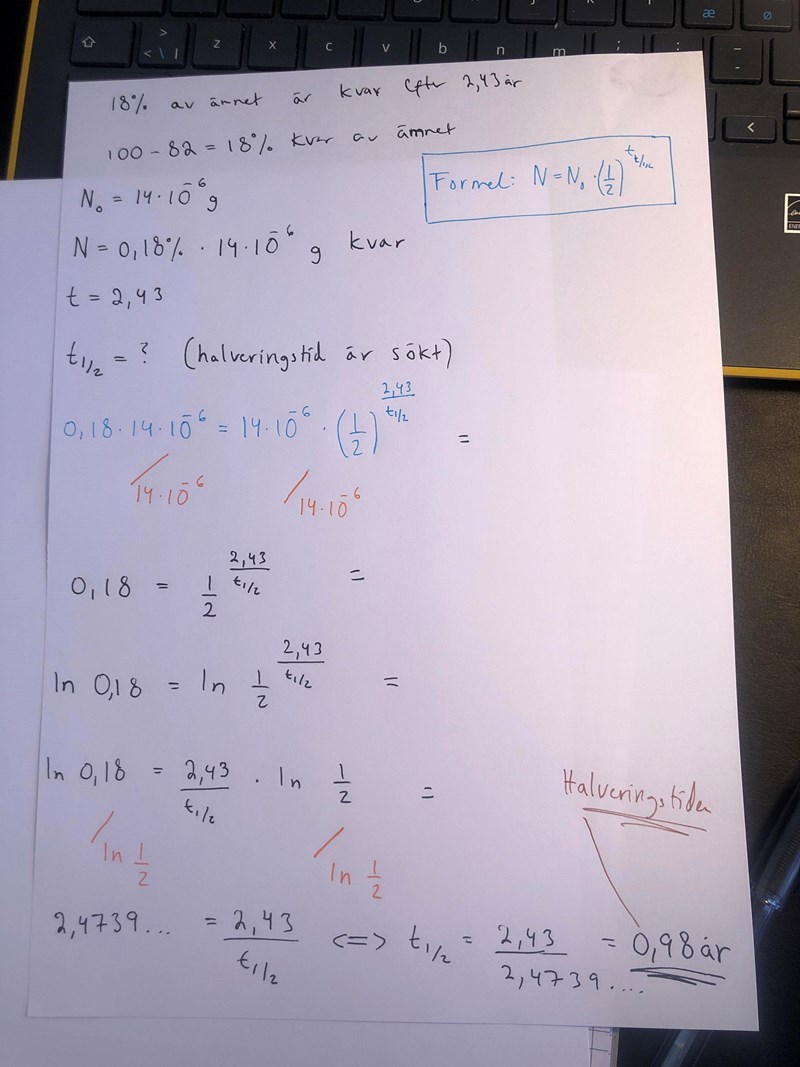 æ
ø
>
< \ |
z
x
c
v
b
n
m
;
,
:
.
-
_
<
18% av ämnet är kvar efter 2,43 år
100 - 82 = 18% kvar av ämnet
Formel: N = N₀ · (1/2)^(t/t1/2)
N₀ = 14·10⁻⁶ g
N = 0,18% · 14·10⁻⁶ g kvar
t = 2,43
t1/2 = ? (halveringstid är sökt)
0,18·14·10⁻⁶ = 14·10⁻⁶ · (1/2)^(2,43/t1/2) =
/14·10⁻⁶ /14·10⁻⁶
0,18 = 1/2^(2,43/t1/2) =
ln 0,18 = ln 1/2^(2,43/t1/2) =
ln 0,18 = 2,43/t1/2 · ln 1/2 =
/ln 1/2 /ln 1/2
Halveringstiden
2,4739... = 2,43/t1/2 <=> t1/2 = 2,43/2,4739.... = 0,98 år